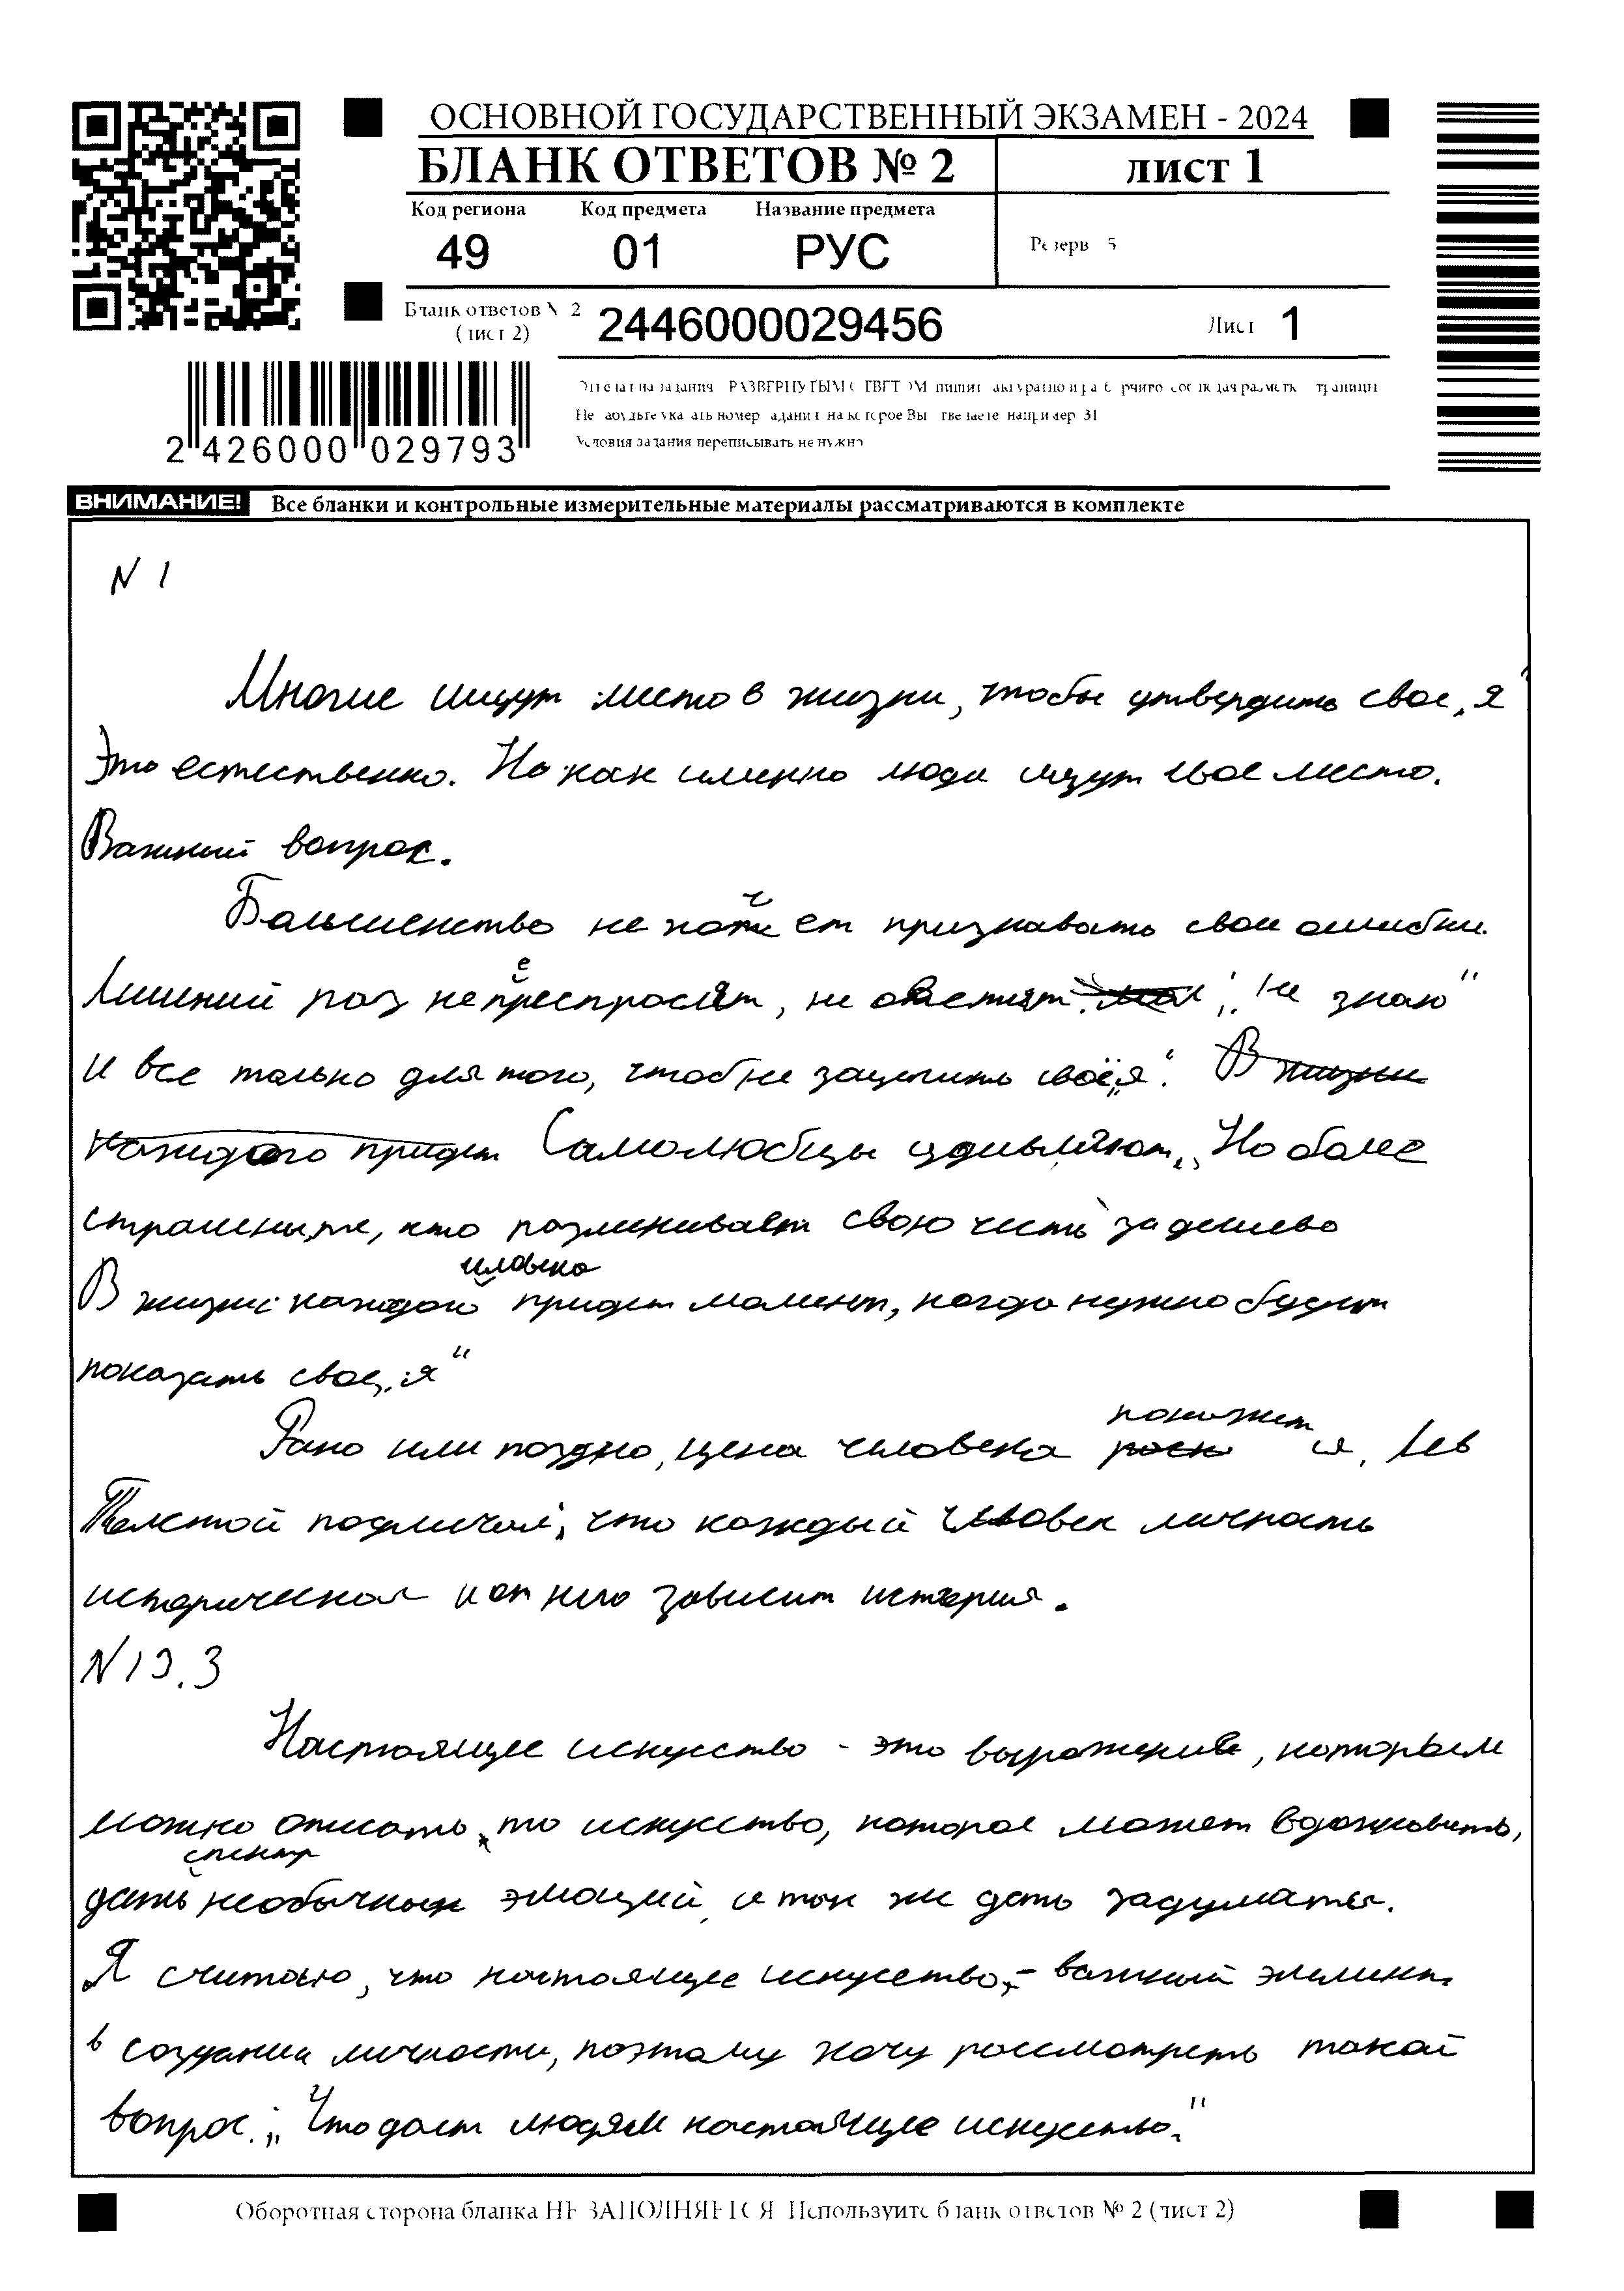 ОСНОВНОЙ ГОСУДАРСТВЕННЫЙ ЭКЗАМЕН - 2024
БЛАНК ОТВЕТОВ № 2
ЛИСТ 1
Код региона Код предмета Название предмета
49 01 РУС
Резерв 5
Бланк ответов № 2
(лист 2)
2446000029456
Лист 1
2 426000 029793
Условия задания переписывать не нужно
ВНИМАНИЕ! Все бланки и контрольные измерительные материалы рассматриваются в комплекте
N 1
Многие ищут место в жизни, чтобы утвердить свое „я
Это естественно. Но как именно люди ищут свое место.
Важный вопрос.
Большенство не хочет признавать свои ошибки.
Лишний раз не переспросят, не ответят „Не знаю"
И все только для того, чтоб не зацепить своё „я". В жизни
каждого придет Самолюбцы удивляют. Но более
страшны те, кто разменивает свою честь за дешево
В жизни каждого человека придет момент, когда нужно будет
показать свое „я"
Рано или поздно, цена человека покажется. Лев
Толстой подмечал, что каждый человек личность
историческая и от него зависит история.
N 13.3
Настоящее искусство - это выражение, которым
можно описать то искусство, которое может вдохновить,
дать спектр необычных эмоций, а так же дать задуматься.
Я считаю, что настоящее искусство - важный элемент
в создании личности, поэтому хочу рассмотреть такой
вопрос: „Что дает людям настоящее искусство."
Оборотная сторона бланка НЕ ЗАПОЛНЯЕТСЯ Используйте бланк ответов № 2 (лист 2)